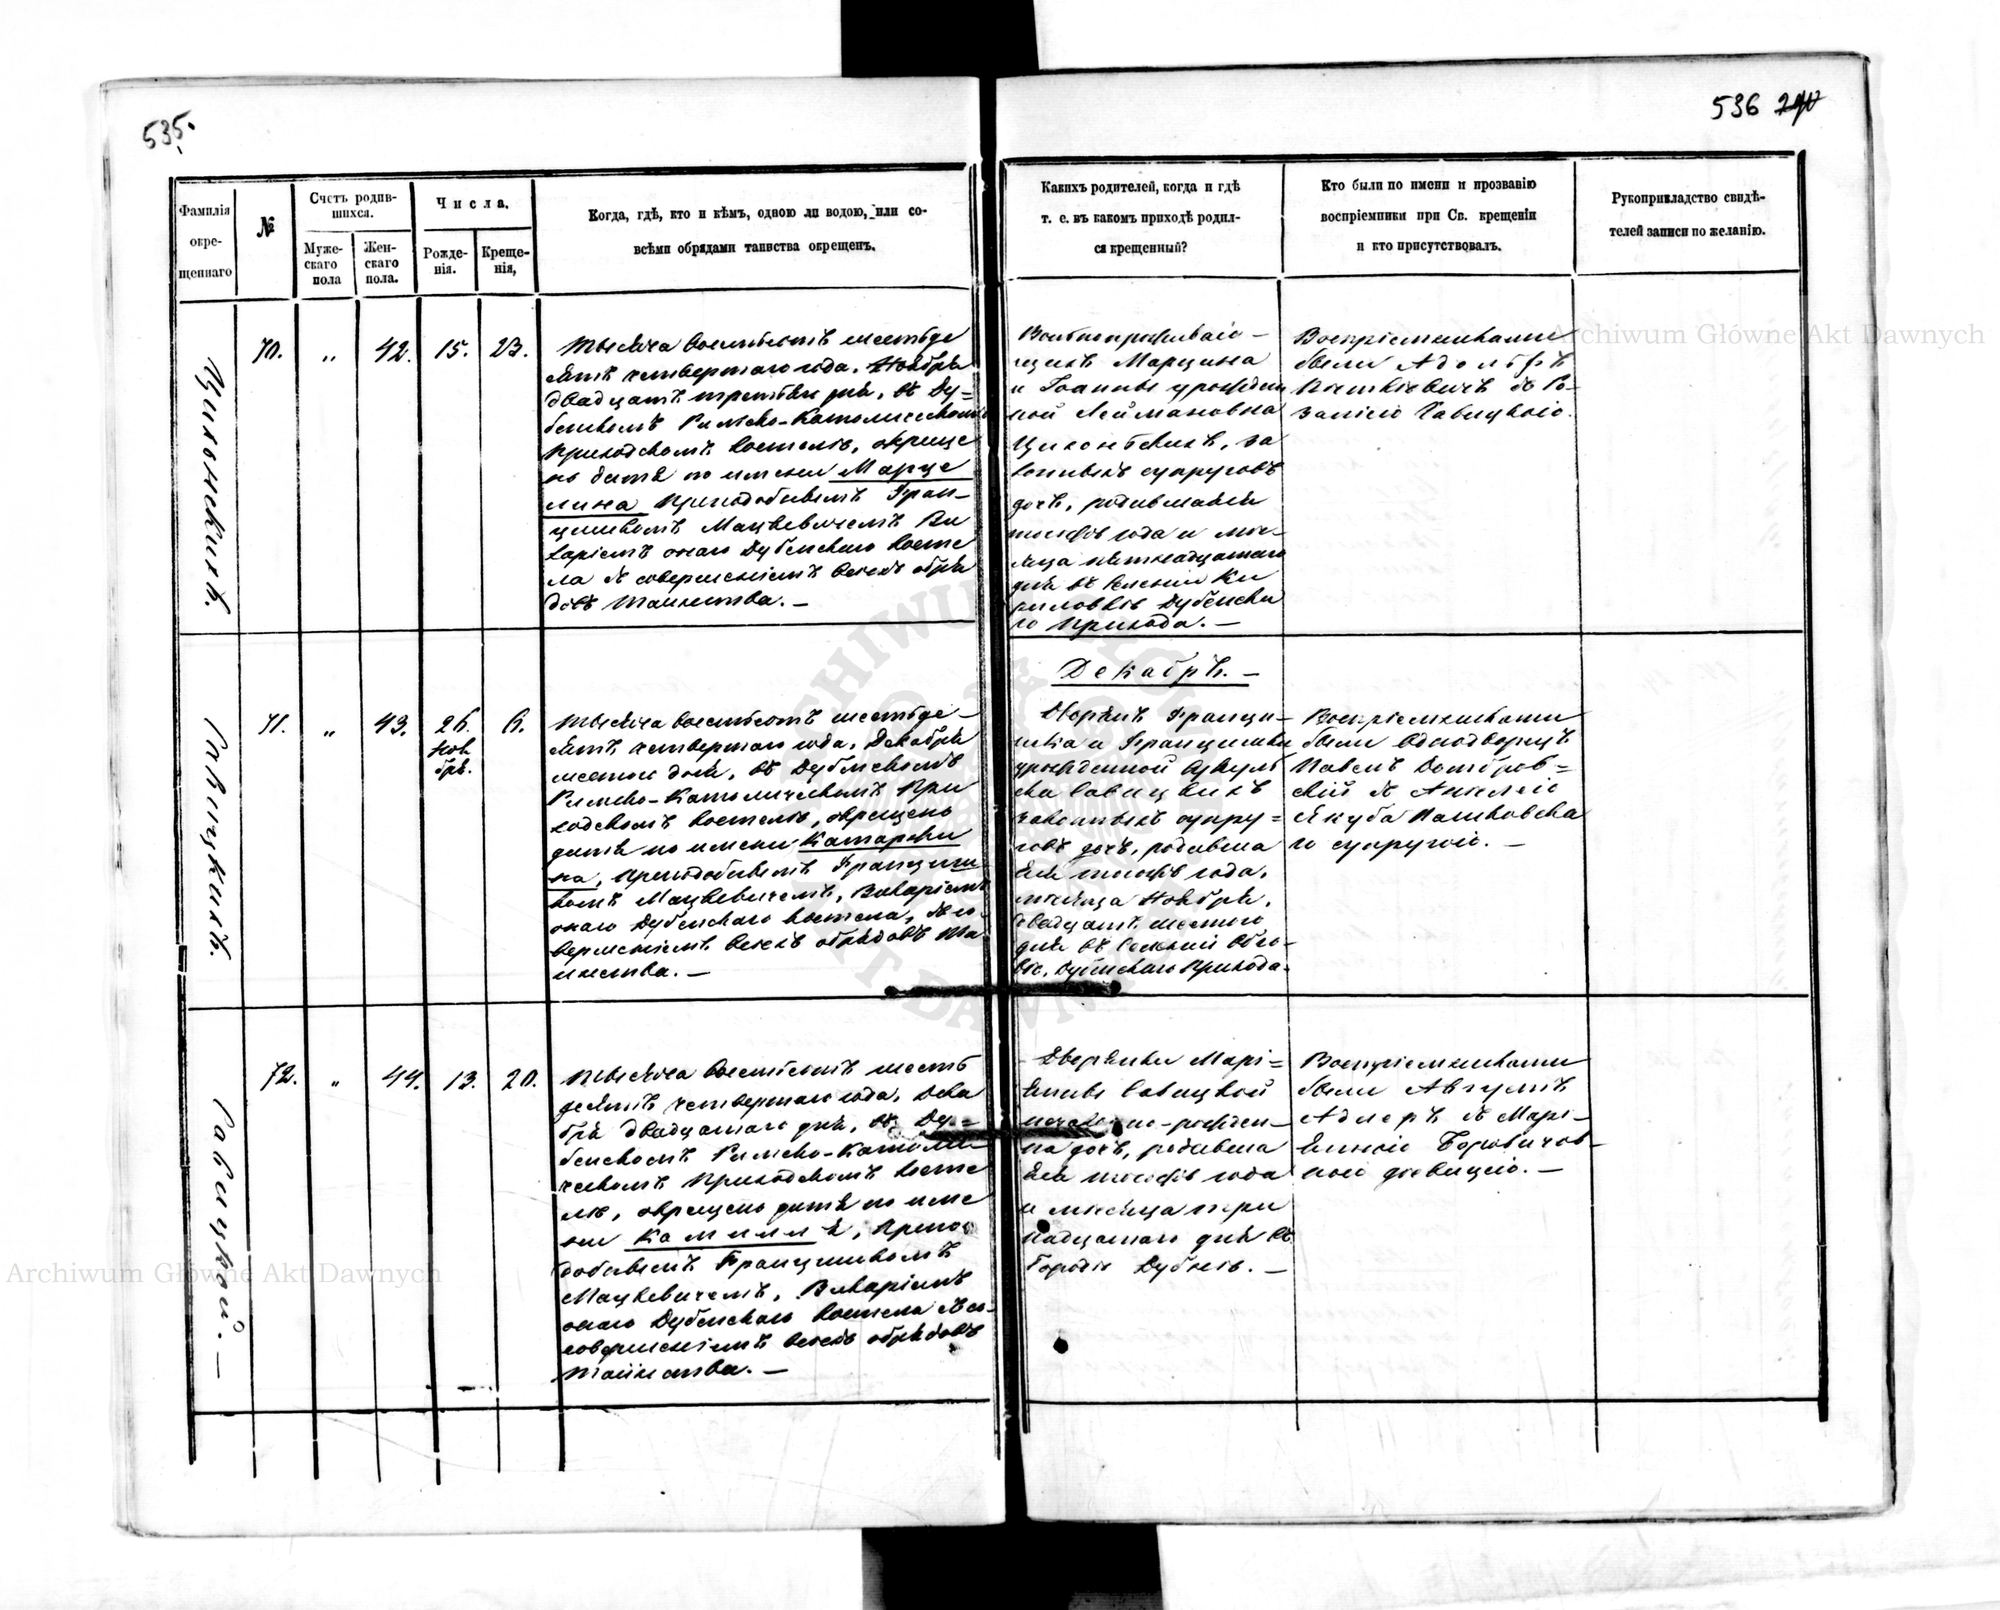 535.
536 290
Фамилія окрещеннаго
№
Счетъ родившихся.
Мужескаго пола
Женскаго пола.
Числа.
Рожденія.
Крещенія,
Когда, гдѣ, кто и кѣмъ, одною ли водою, или со-
всѣми обрядами таинства окрещенъ.
Какихъ родителей, когда и гдѣ
т. е. въ какомъ приходѣ родил-
ся крещенный?
Кто были по имени и прозванію
воспріемники при Св. крещеніи
и кто присутствовалъ.
Рукоприкладство свидѣ-
телей записи по желанію.
70. „ 42. 15. 23.
Тысяча восемьсотъ шестьде
сятъ четвертаго года, Ноября
двадцать третьяго дня, въ Ду=
бенскомъ Римско-Католическомъ
Приходскомъ Костелѣ, окреще
но дитя по имени Марце
лина Преподобнымъ Фран-
цишкомъ Мацкевичемъ Ви
каріемъ онаго Дубенскаго Косте
ла съ совершеніемъ всехъ обря
довъ Таинства. —
Вольнопроживаю-
щихъ Марцина
и Іоанны урожден
ной
законныхъ супруговъ
дочь, родившаяся
тогожъ года и мѣ-
сяца пятнадцатаго
дня въ селеніи Ки
риловкѣ Дубенска
го Прихода. —
Воспріемниками
были Адольфъ
съ Ро-
заліею Савицкою.
Декабрь. —
Савицкихъ.
71. „ 43. 26. Ноября. 6.
Тысяча восемьсотъ шестьде-
сятъ четвертаго года, Декабря
шестого дня, въ Дубенскомъ
Римско-Католическомъ При
ходскомъ Костелѣ, окрещено
дитя по имени Катаржи
на, Преподобнымъ Францищ
комъ Мацкевичемъ, Викаріемъ
онаго Дубенскаго Костела, съ со-
вершеніемъ всехъ обрядовъ Та
инства. —
Дворянъ Франци-
шка и Францишки
урожденной
Савицкихъ
законныхъ супру=
говъ дочь, родивша
яся тогожъ года,
мѣсяца Ноября,
двадцать шестого
дня въ селеніи
Дубенскаго Прихода.
Воспріемниками
были Однодворецъ
Павелъ Домбров=
скій съ Анелею
Якуба Палиховска
го супругою. —
Савицкой. —
72. „ 44. 13. 20.
Тысяча восемьсотъ шесть
десятъ четвертаго года, Дека
бря двадцатаго дня, въ Ду=
бенскомъ Римско-Католи
ческомъ Приходскомъ Косте
лѣ, окрещено дитя по име
ни Камилля, Препо
добнымъ Францишкомъ
Мацкевичемъ, Викаріемъ
онаго Дубенскаго Костела съ со-
совершеніемъ всехъ обрядовъ
Таинства. —
Дворянки Марі=
янны Савицкой
незаконно-рожден-
на дочь, родивша
яся тогожъ года
и мѣсяца три
надцатаго дня въ
Городѣ Дубнѣ. —
Воспріемниками
были Августъ
Адлеръ съ Марі-
янною
дѣвицею. —
Archiwum Główne Akt Dawnych
Archiwum Główne Akt Dawnych